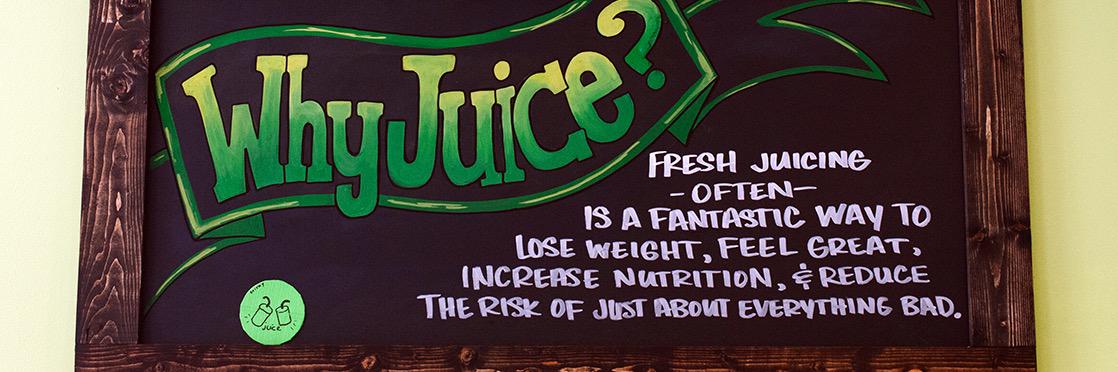 Why Juice?
FRESH JUICING
-OFTEN-
IS A FANTASTIC WAY TO
LOSE WEIGHT, FEEL GREAT,
INCREASE NUTRITION, & REDUCE
THE RISK OF JUST ABOUT EVERYTHING BAD.
JUICE